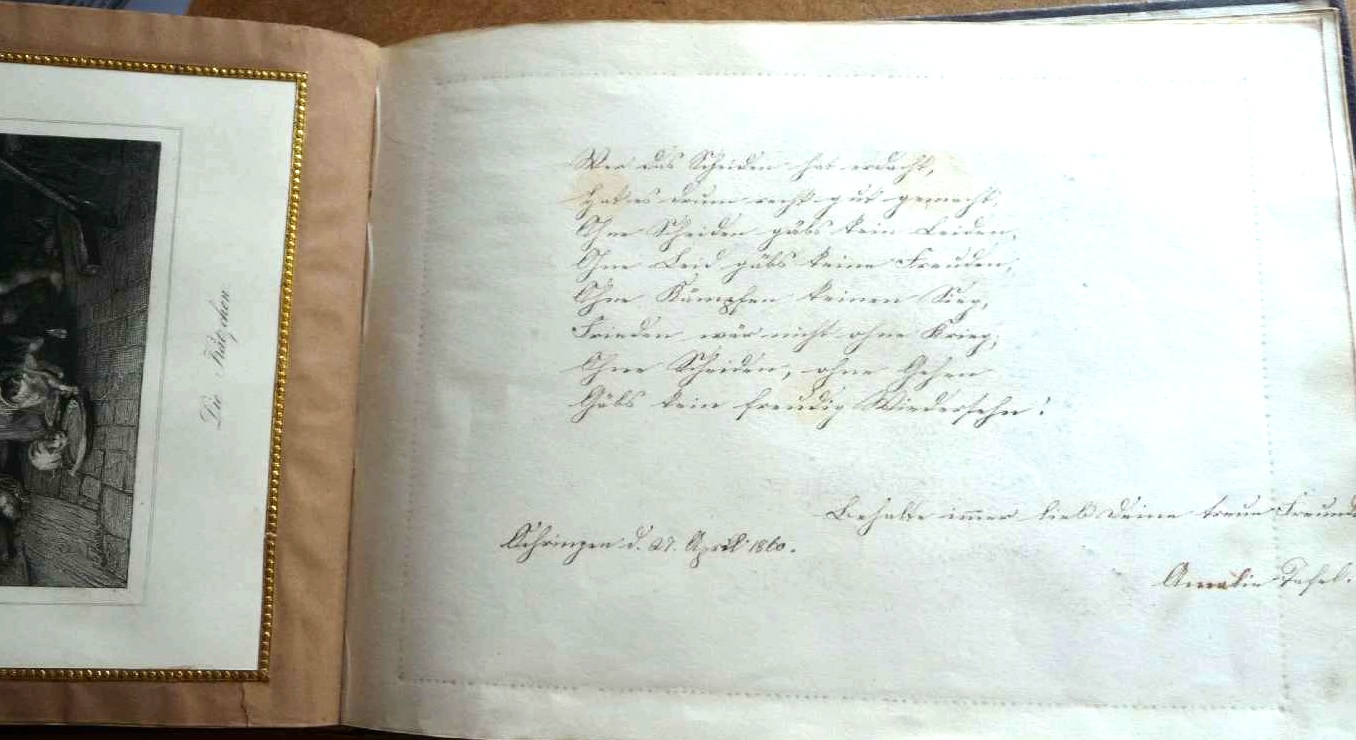 Die Kätzchen.
Wer das Scheiden hat erdacht,
Hat es drum recht gut gemacht.
Ohne Scheiden gäbs kein Leiden,
Ohne Leid gäbs keine Freuden,
Ohne Kämpfen keinen Sieg,
Frieden wär nicht ohne Krieg;
Ohne Scheiden, ohne Gehen
Gäbs kein freudig Wiedersehn!
Behalte immer lieb deine treue Freund
Öhringen d. 27. April 1860.
Amalie Tafel.